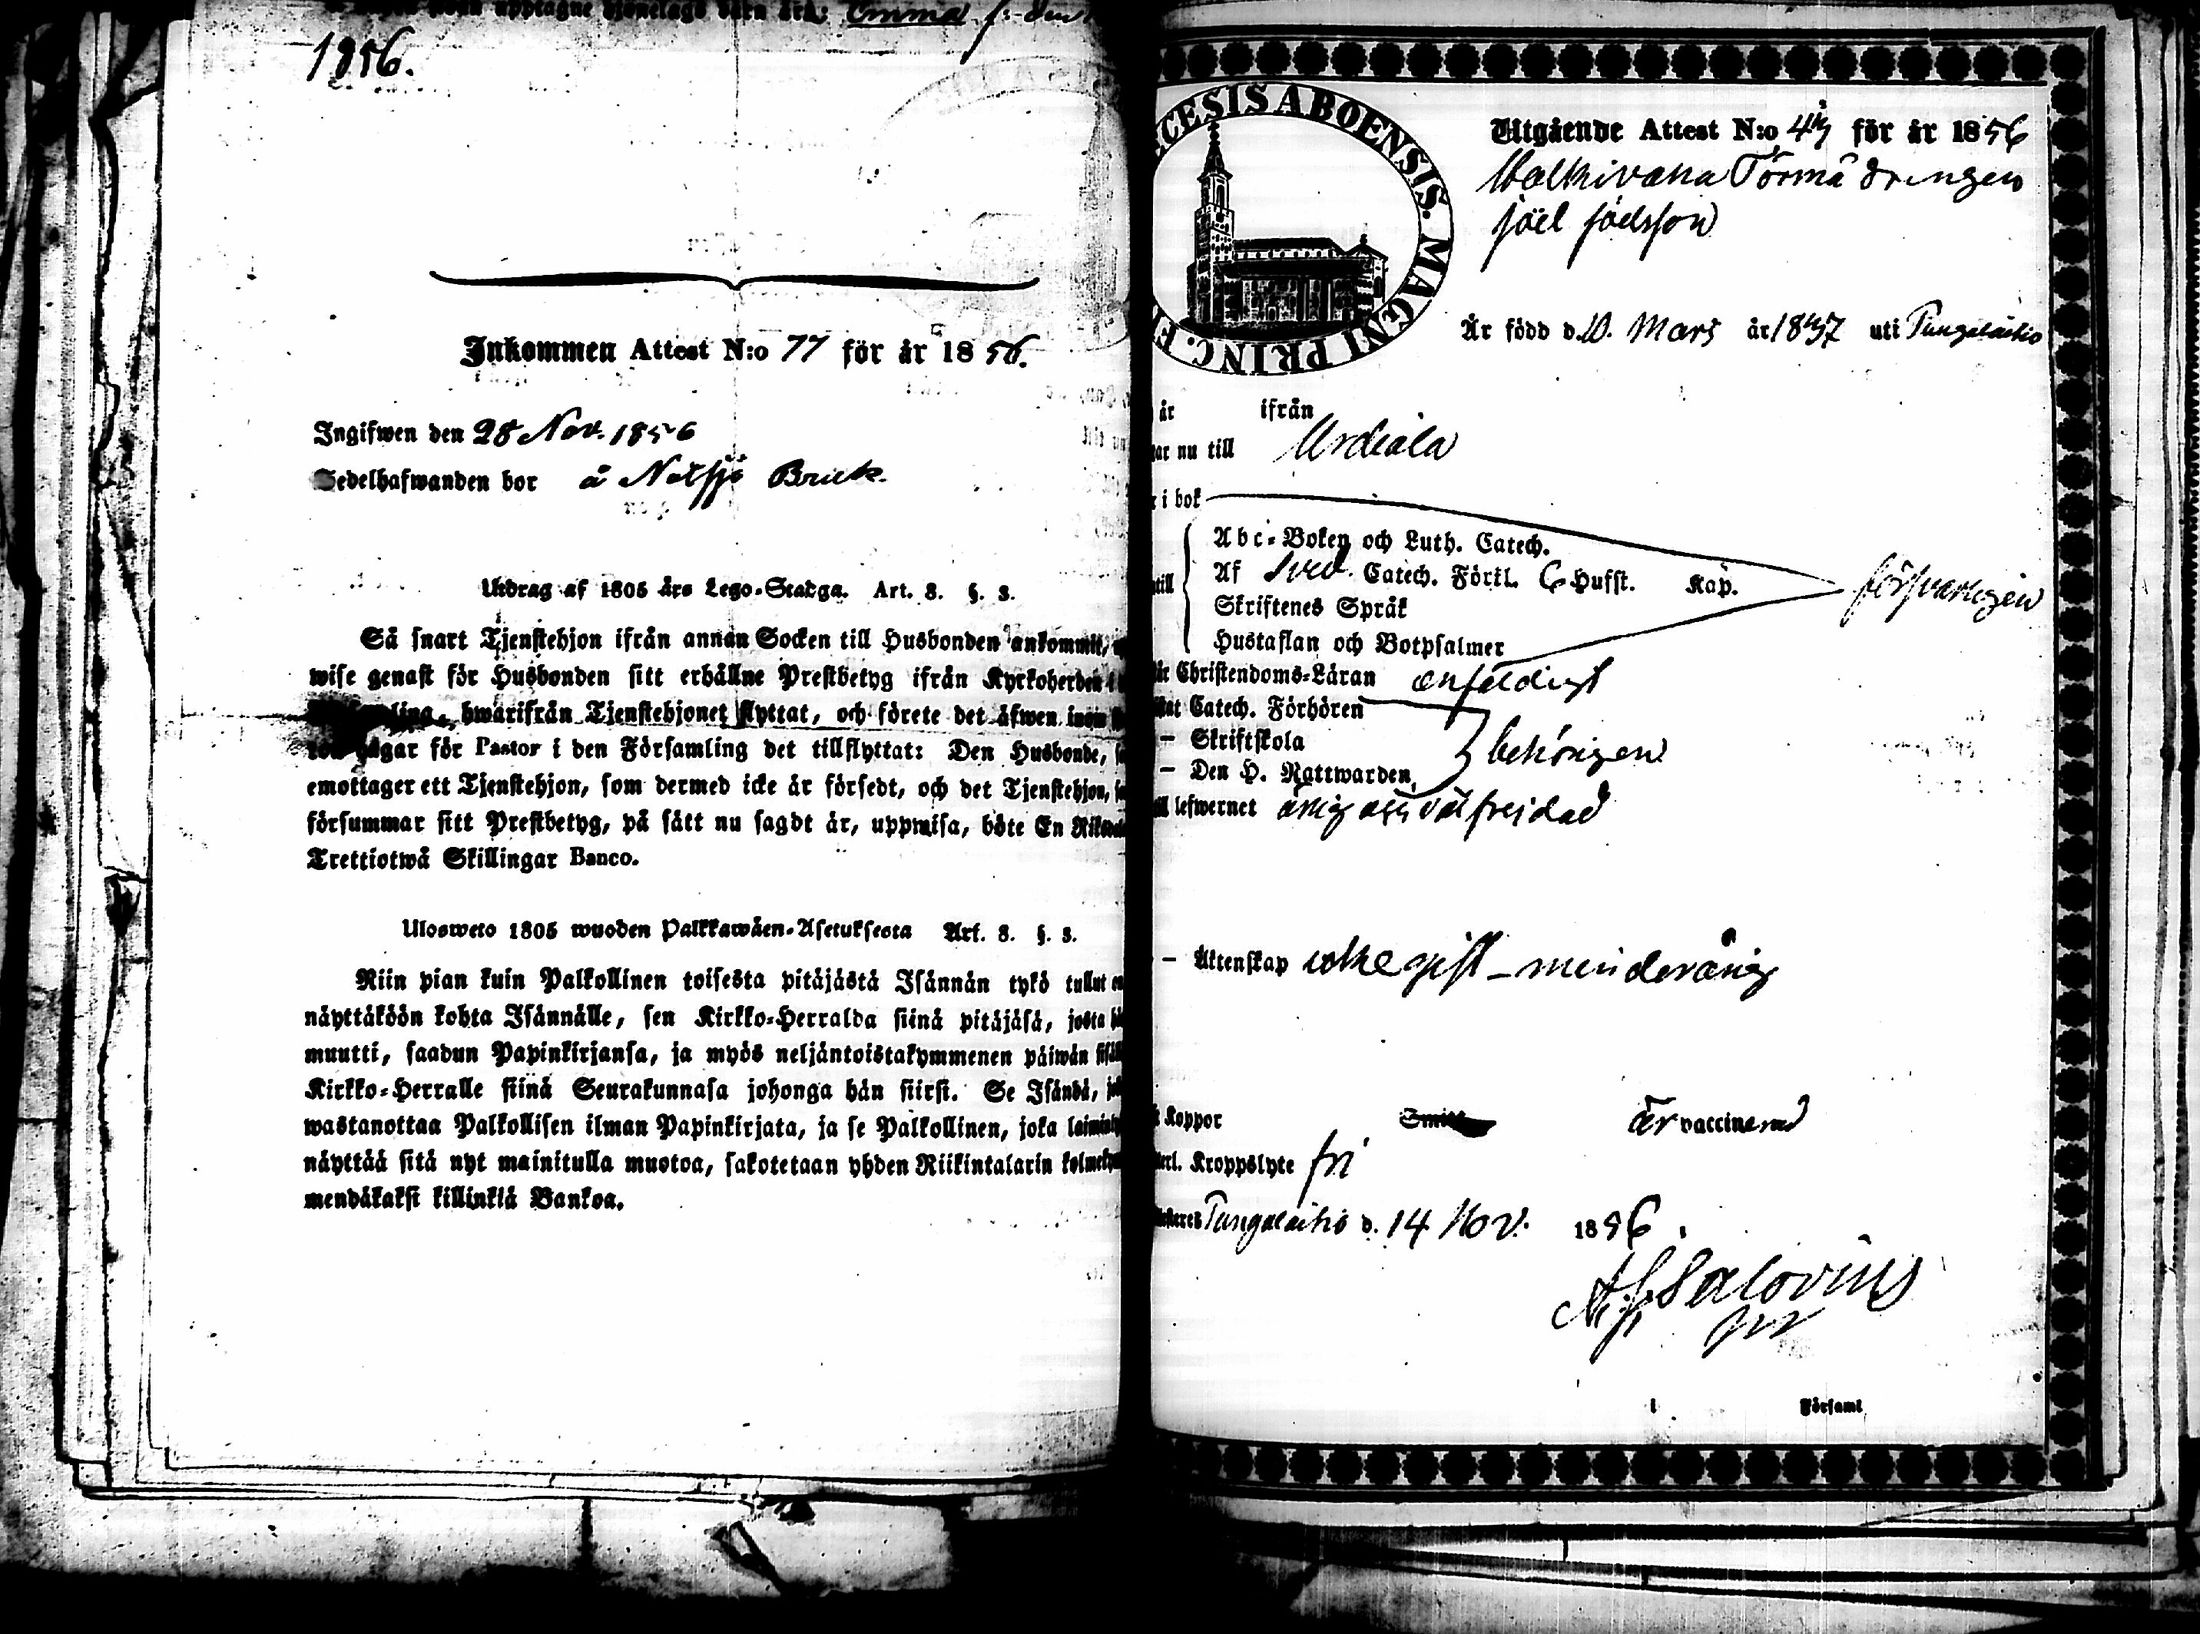 upptagne barn äro: Emma f. den
1856.
Inkommen Attest N:o 77 för år 1856.
Ingifwen den 28 Nov. 1856
Sedelhafwanden bor å Notsjö Bruk.
Utdrag af 1805 års Lego-Stadga. Art. 8. §. 3.
Så snart Tjenstehjon ifrån annan Socken till Husbonden ankommit,
wise genast för Husbonden sitt erhållne Prestbetyg ifrån Kyrkoherden i
hwarifrån Tjenstehjonet flyttat, och förete det äfwen inom
dagar för Pastor i den Församling det tillflyttat: Den Husbonde,
emottager ett Tjenstehjon, som dermed icke är försedt, och det Tjenstehjon,
försummar sitt Prestbetyg, på sätt nu sagdt är, uppwisa, böte En
Trettiotwå Skillingar Banco.
Ulosweto 1805 wuoden Palkkawäen-Asetuksesta Art. 8. §. 3.
Niin pian kuin Palkollinen toisesta pitäjästä Isännän tykö tullut on
näyttäköön kohta Isännälle, sen Kirkko-Herralda siinä pitäjäsä, josta
muutti, saadun Papinkirjansa, ja myös neljäntoistakymmenen päiwän
Kirkko-Herralle siinä Seurakunnasa johonga hän siirsi. Se Isändä,
wastanottaa Palkollisen ilman Papinkirjata, ja se Palkollinen, joka
näyttää sitä nyt mainitulla muotoa, sakotetaan yhden Riikintalarin
mendäkaksi killinkiä Bankoa.
CESIS ABOENSIS. MAGNI PRINC. F
Utgående Attest N:o för år 1856
Törmä drengen
Joel Joelsson
Är född d. 10. Mars år 1837 uti Pungalaitio
år ifrån
nu till Urdiala
i bok
Abc-Boken och Luth. Catech.
Af Sved. Catech. Förkl. Husst. Kap. försvarligen
Skriftenes Språk
Hustaflan och Botpsalmer
Christendoms-Läran enfaldigt
Catech. Förhören
- Skriftskola behörigen
- Den H. Nattwarden
lefwernet ärlig och välfrejdad
- Äktenskap icke gift - minderårig
Koppor är vaccinerad
Kroppslyte fri
Pungalaitio d. 14 Nov. 1856.
Salovius
Församl